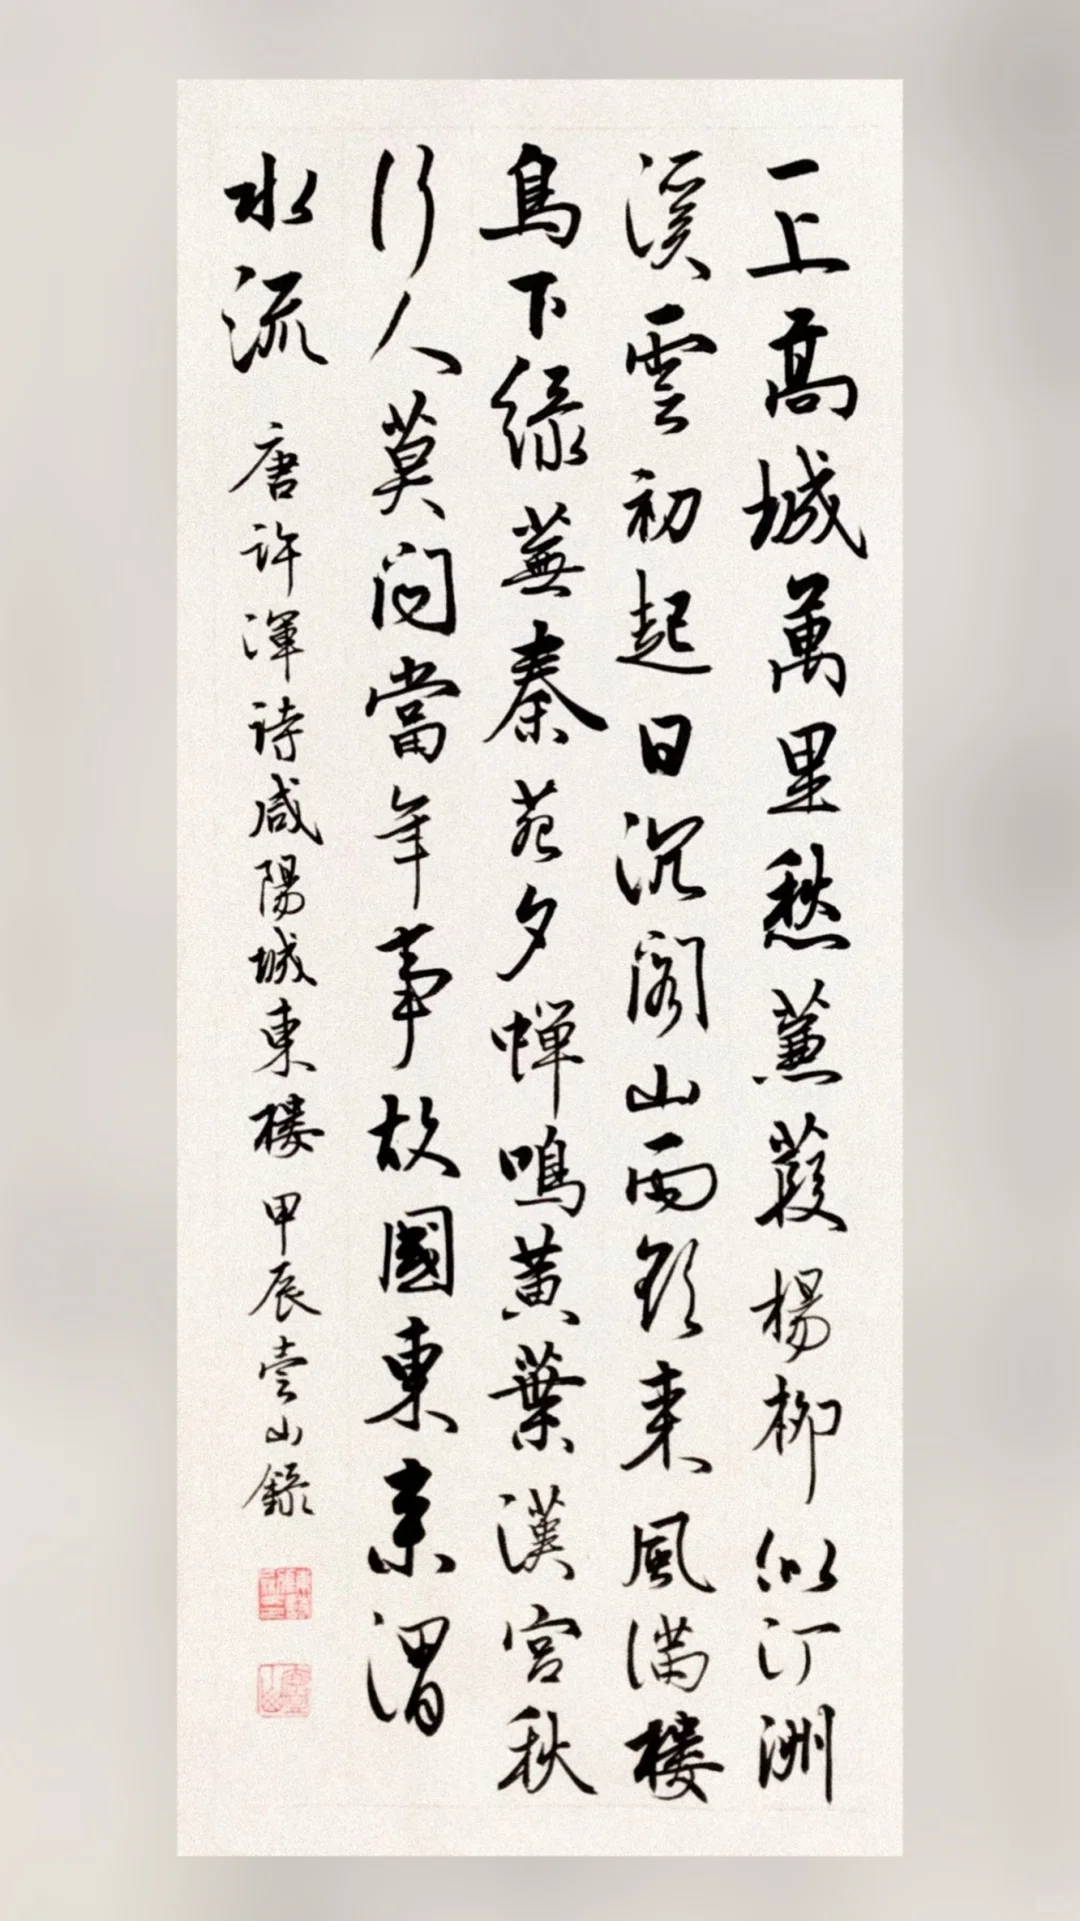 一上高城萬里愁蒹葭楊柳似汀洲
溪雲初起日沉閣山雨欲来風滿樓
鳥下綠蕪秦苑夕蟬鳴黄葉漢宮秋
行人莫问當年事故國東来渭
水流
唐许渾诗咸陽城東樓甲辰壹山錄